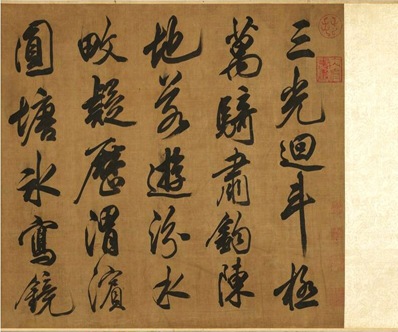 三光迴斗極
萬騎肅鈎陳
地若遊汾水
畋疑歷渭濱
圓塘冰寫鏡